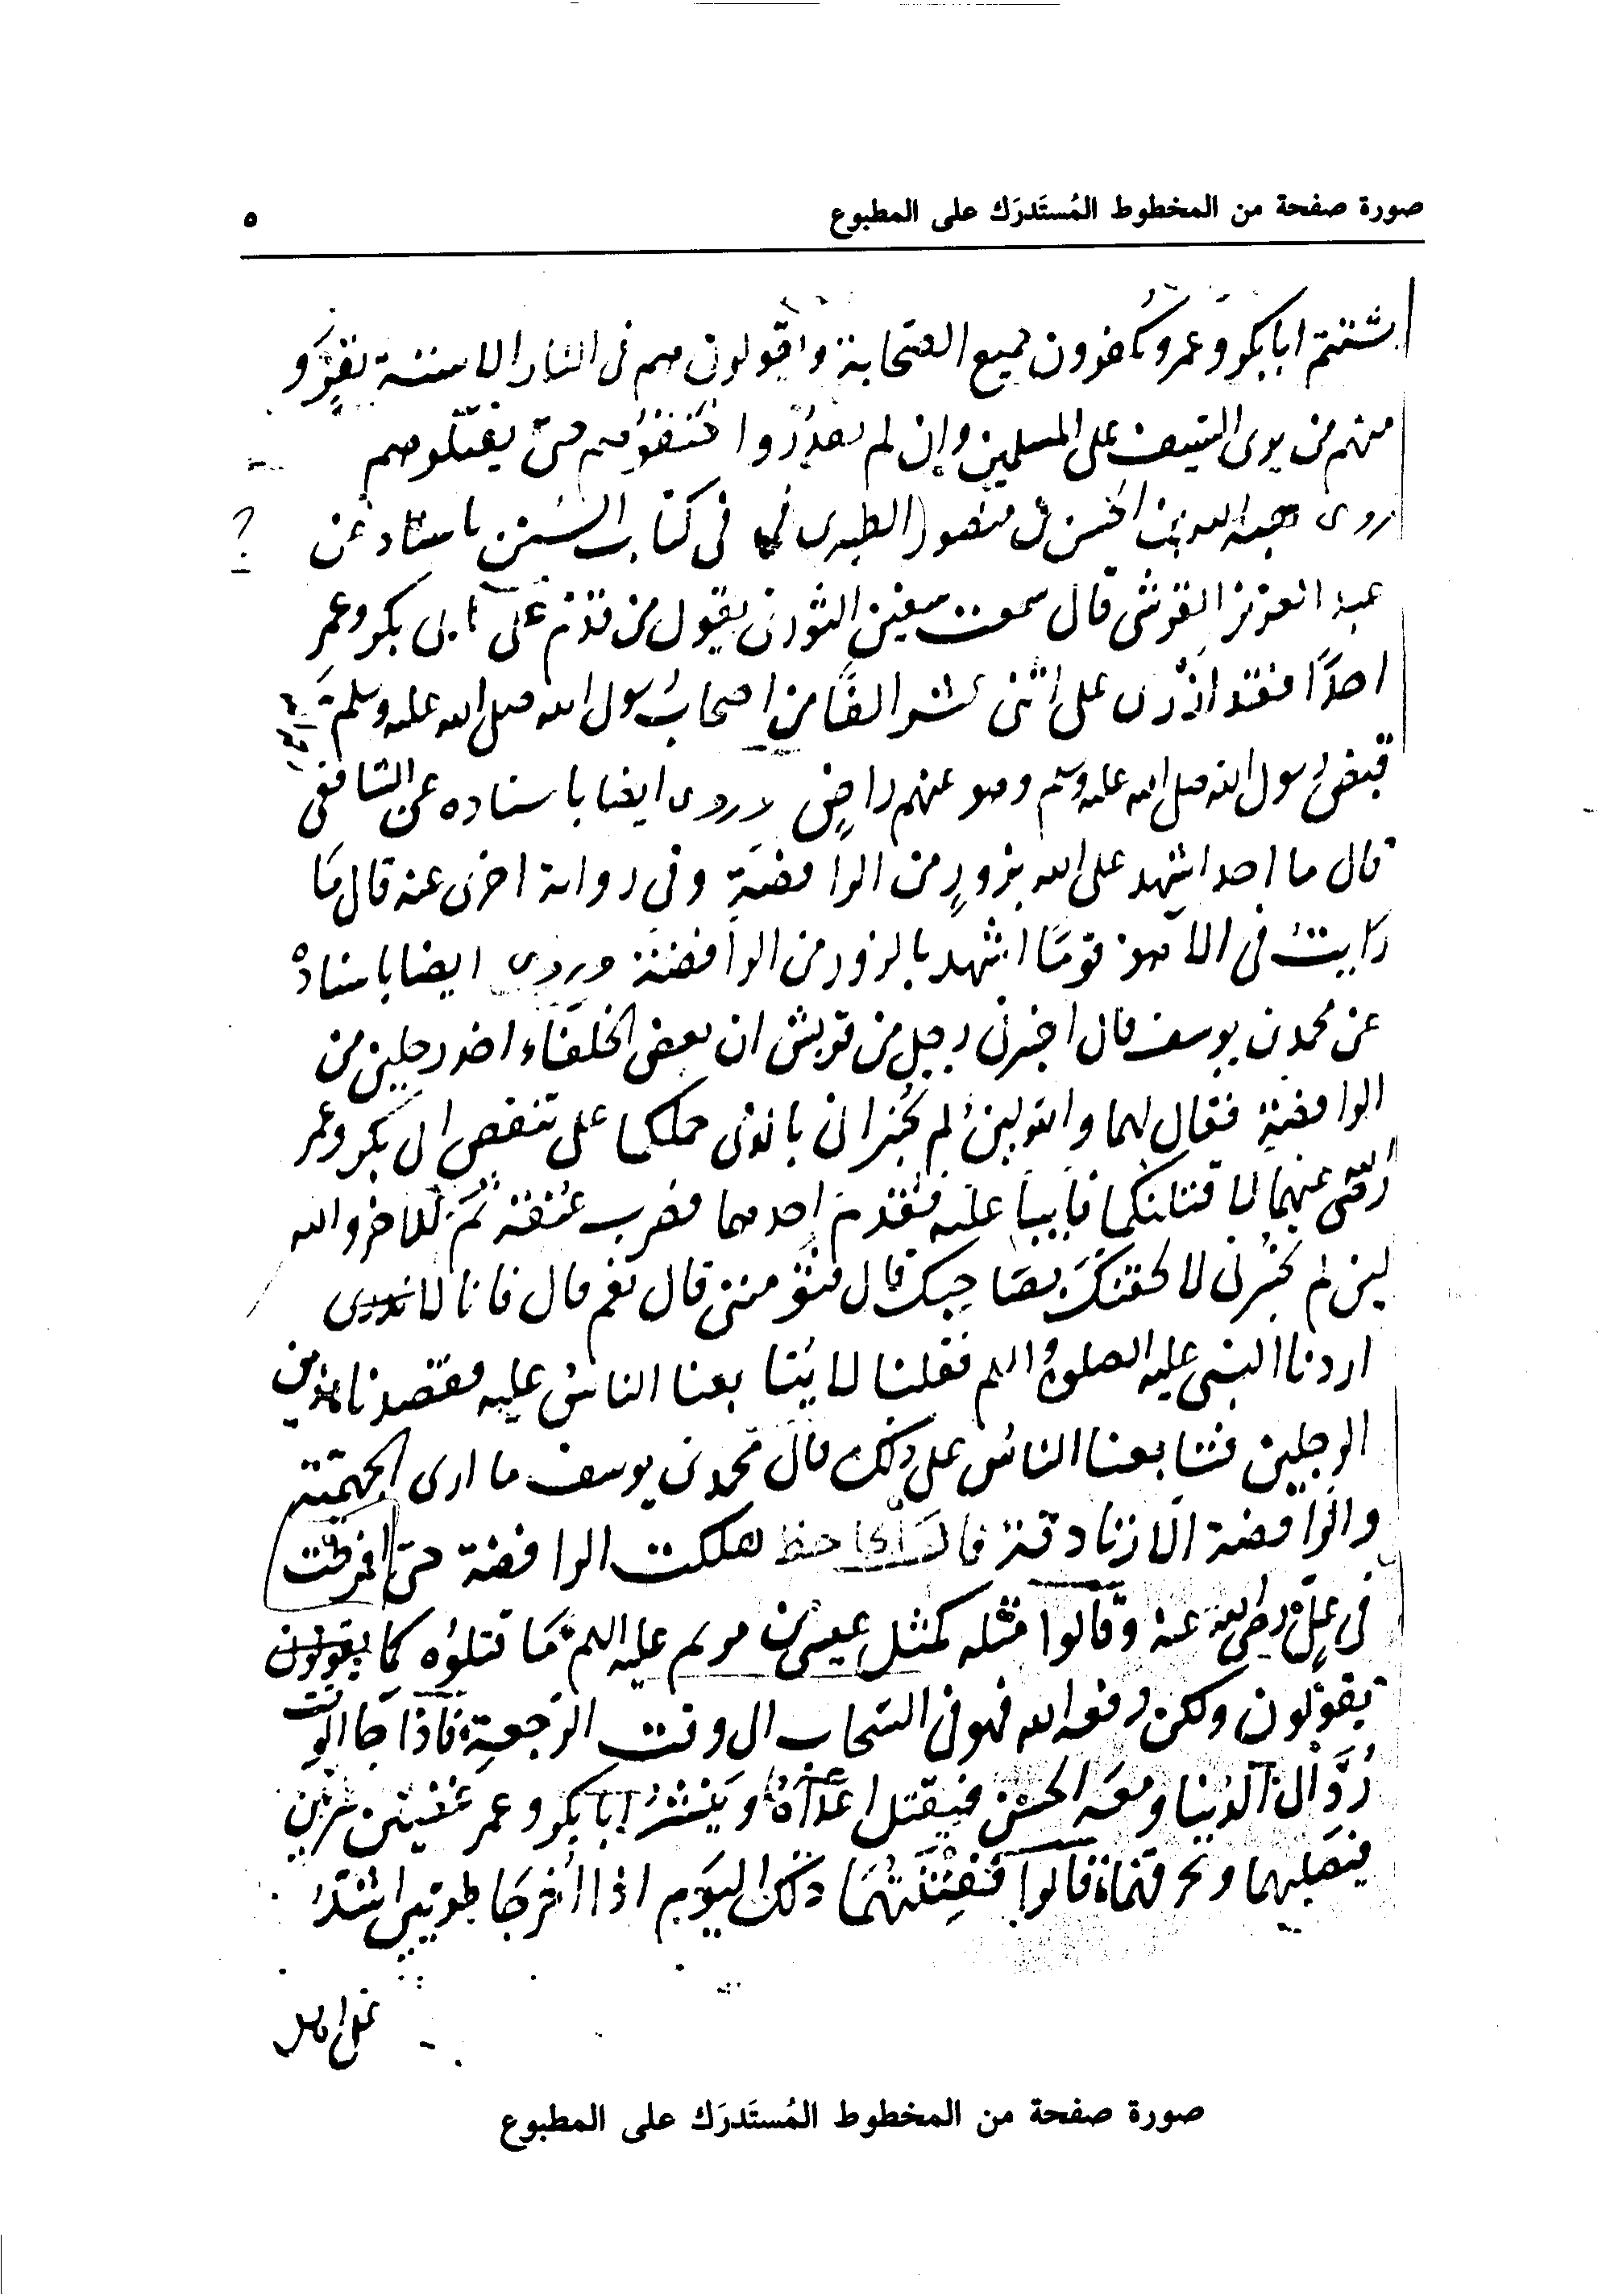 صورة صفحة من المخطوط المُستَدرَك على المطبوع ٥
يشتم ابا بكر وعمر ويكفرون جميع الصحابة ويقولون هم في النار الا ستة نفر و
منهم من يرى السيف على المسلمين وإن لم يقدروا حتى يقتلوهم
روى هبة الله بن الحسن بن منصور الطبري في كتاب السنن باسناد عن
عبد العزيز القرشي قال سمعت سفين الثوري يقول من قدم على ابي بكر وعمر
احدًا فقد ازرى على اثنى عشر الفًا من اصحاب رسول الله صلى الله عليه وسلم
قبض رسول الله صلى الله عليه وسلم وهو عنهم راضٍ وروى ايضا باسناده عن الشافعي
قال ما احد اشهد على الله بزورٍ من الرافضة وفى رواية اخرى عنه قال مَا
رايت في الاهو قومًا اشهد بالزور من الرافضة وروى ايضا باسناده
عن محمد بن يوسف قال اخبرنى رجل من قريش ان بعض الخلفاء اخذ رجلين من
الرافضة فقال لهما والله لئن لم تخبرانى بالذى حملكما على تنقص ابى بكر وعمر
رضى عنهما لاقتلنكما فأبيا عليه فقدم احدهما فضرب عنقه ثم للاخر والله
لين لم تخبرنى لالحقنك بصاحبك قال فتؤمننى قال نعم قال فانا
اردنا النبى عليه الصلوة والسلم فقلنا لا يتابعنا الناس عليه فقصدنا هذين
الرجلين فتابعنا الناس على ذلك قال محمد بن يوسف ما ارى الجهمية
والرافضة الّا زنادقة قال الجاحظ هلكت الرافضة حتى افرطت
في علىّ رضى الله عنه وقالوا مثله كمثل عيسى بن مريم عليه السلم مَا قتلوه كما يقولون
يقولون ولكن رفعه الله فهو في السحاب الى وقت الرجعة فاذا جا الوقت
رُدَّ الى الدنيا ومعه الحسن فيقتل اعداه وينشر ابا بكر وعمر
فيصلبهما ويحرقهما قالوا فتنتهما ذلك اليوم اذا اخرجا طريين اشدّ
على اهل
صورة صفحة من المخطوط المُستَدرَك على المطبوع